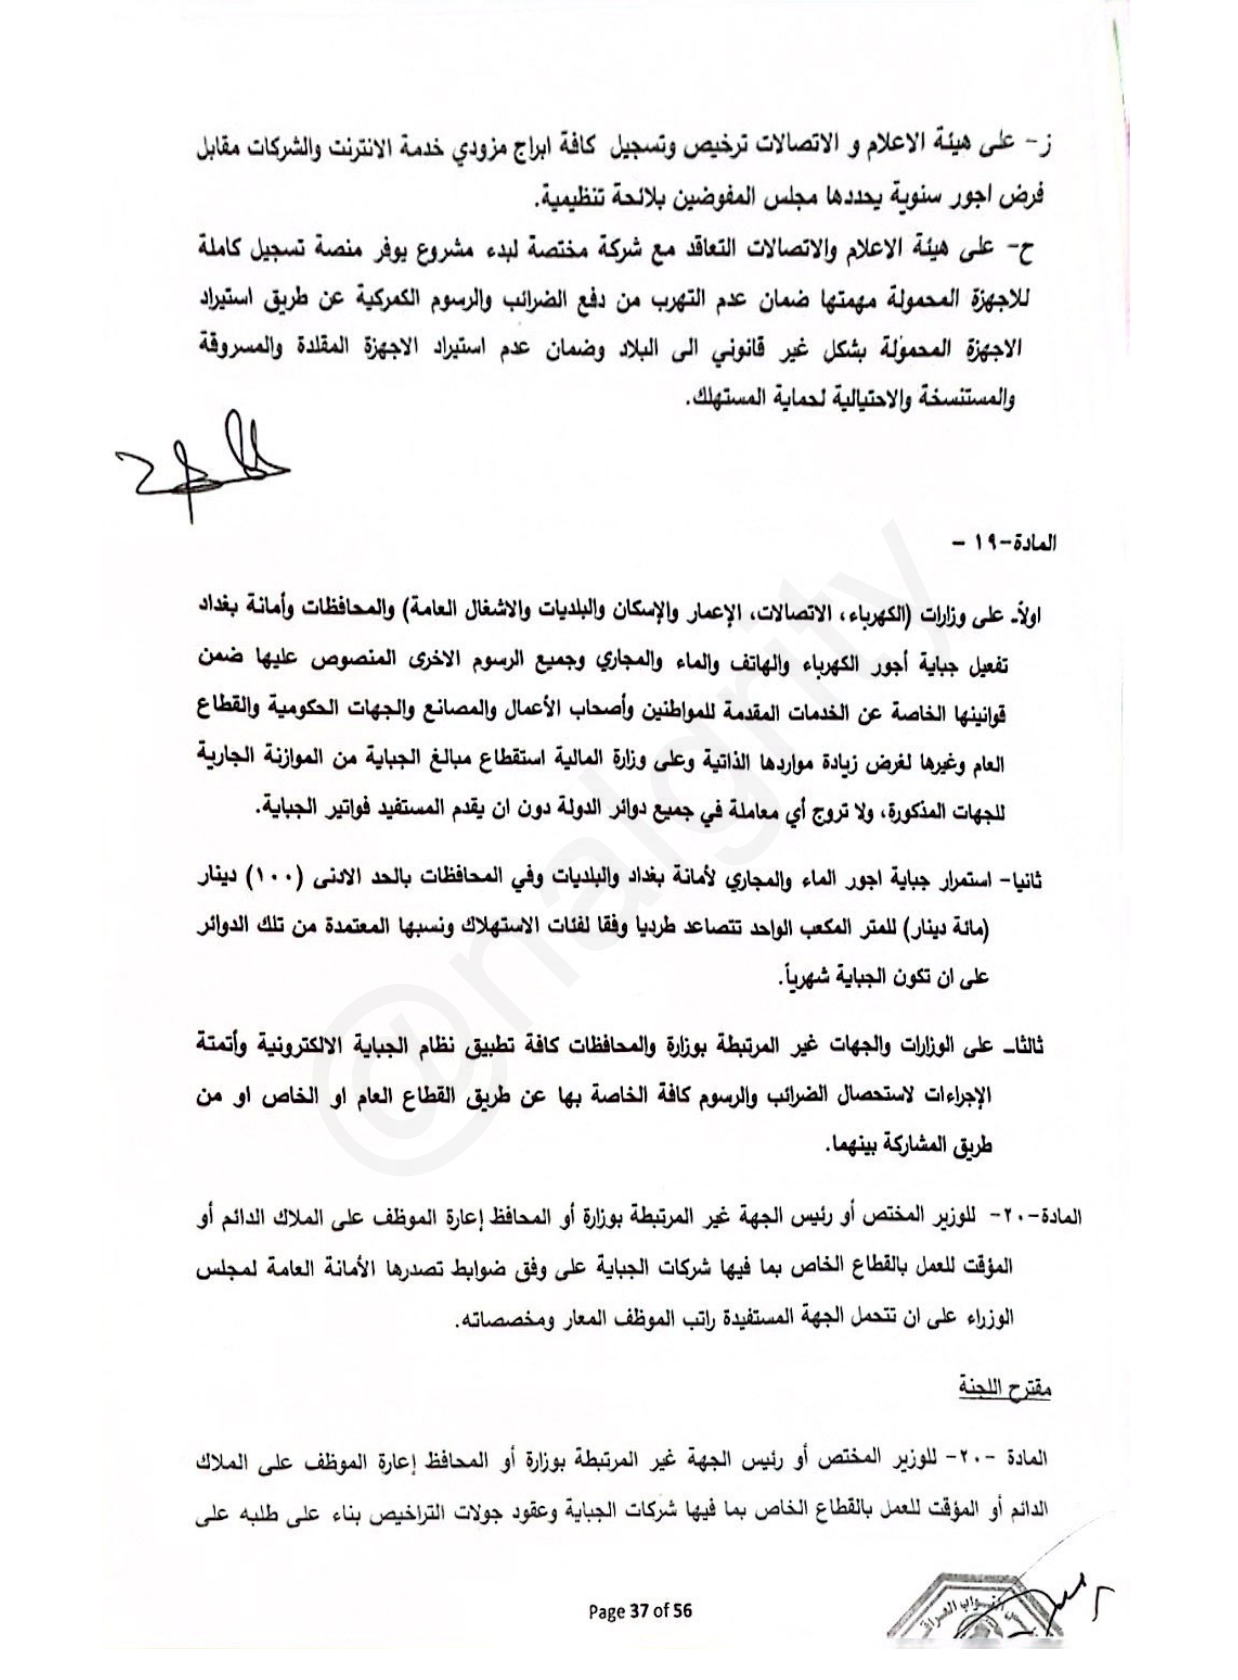 ز- على هيئة الاعلام و الاتصالات ترخيص وتسجيل كافة ابراج مزودي خدمة الانترنت والشركات مقابل
فرض اجور سنوية يحددها مجلس المفوضين بلائحة تنظيمية.
ح- على هيئة الاعلام والاتصالات التعاقد مع شركة مختصة لبدء مشروع يوفر منصة تسجيل كاملة
للاجهزة المحمولة مهمتها ضمان عدم التهرب من دفع الضرائب والرسوم الكمركية عن طريق استيراد
الاجهزة المحمولة بشكل غير قانوني الى البلاد وضمان عدم استيراد الاجهزة المقلدة والمسروقة
والمستنسخة والاحتيالية لحماية المستهلك.
المادة-١٩ -
اولاً- على وزارات (الكهرباء، الاتصالات، الإعمار والإسكان والبلديات والاشغال العامة) والمحافظات وأمانة بغداد
تفعيل جباية أجور الكهرباء والهاتف والماء والمجاري وجميع الرسوم الاخرى المنصوص عليها ضمن
قوانينها الخاصة عن الخدمات المقدمة للمواطنين وأصحاب الأعمال والمصانع والجهات الحكومية والقطاع
العام وغيرها لغرض زيادة مواردها الذاتية وعلى وزارة المالية استقطاع مبالغ الجباية من الموازنة الجارية
للجهات المذكورة، ولا تروج أي معاملة في جميع دوائر الدولة دون ان يقدم المستفيد فواتير الجباية.
ثانيا- استمرار جباية اجور الماء والمجاري لأمانة بغداد والبلديات وفي المحافظات بالحد الادنى (١٠٠) دينار
(مائة دينار) للمتر المكعب الواحد تتصاعد طرديا وفقا لفئات الاستهلاك ونسبها المعتمدة من تلك الدوائر
على ان تكون الجباية شهرياً.
ثالثا- على الوزارات والجهات غير المرتبطة بوزارة والمحافظات كافة تطبيق نظام الجباية الالكترونية وأتمتة
الإجراءات لاستحصال الضرائب والرسوم كافة الخاصة بها عن طريق القطاع العام او الخاص او من
طريق المشاركة بينهما.
المادة-٢٠- للوزير المختص أو رئيس الجهة غير المرتبطة بوزارة أو المحافظ إعارة الموظف على الملاك الدائم أو
المؤقت للعمل بالقطاع الخاص بما فيها شركات الجباية على وفق ضوابط تصدرها الأمانة العامة لمجلس
الوزراء على ان تتحمل الجهة المستفيدة راتب الموظف المعار ومخصصاته.
مقترح اللجنة
المادة -٢٠- للوزير المختص أو رئيس الجهة غير المرتبطة بوزارة أو المحافظ إعارة الموظف على الملاك
الدائم أو المؤقت للعمل بالقطاع الخاص بما فيها شركات الجباية وعقود جولات التراخيص بناء على طلبه على
Page 37 of 56
@nalgrity